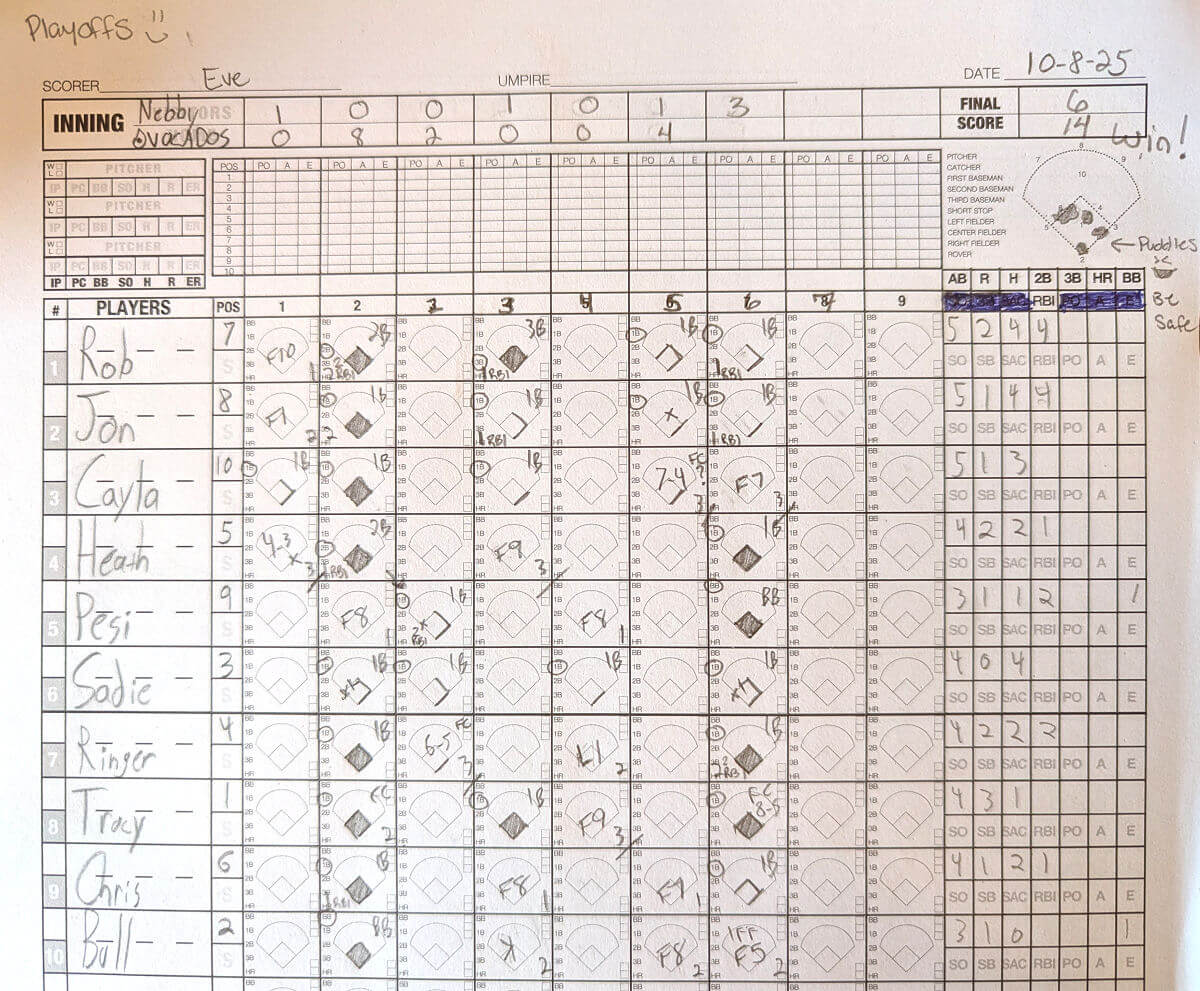 Playoffs :)
SCORER Eve UMPIRE DATE 10-8-25
INNING Nebby 1 0 0 1 0 1 3 FINAL SCORE 6
AVOCADOS 0 8 2 0 0 4 14 Win!
PITCHER
IP PC BB SO H R ER
PITCHER
IP PC BB SO H R ER
PITCHER
IP PC BB SO H R ER
IP PC BB SO H R ER
POS PO A E PO A E PO A E PO A E PO A E PO A E PO A E PO A E PO A E
1
2
3
4
5
6
7
8
9
10
PITCHER
CATCHER
FIRST BASEMAN
SECOND BASEMAN
THIRD BASEMAN
SHORT STOP
LEFT FIELDER
CENTER FIELDER
RIGHT FIELDER
ROVER
7 8 9 10 4 5 3 2
← Puddles
Be Safe
AB R H 2B 3B HR BB
# PLAYERS POS 1 2 2 3 4 5 6 8 9 RBI
1 Rob 7 F10 1 2B RBI 3B 1 RBI 1B 1B 1 RBI 5 2 4 4
SO SB SAC RBI PO A E
2 Jon 8 F7 2 1B 2 1B 1 RBI 1B 1B 1 RBI 5 1 4 4
SO SB SAC RBI PO A E
3 Cayta 10 1B 1B 1B 7-4 FC ? 3 F7 3 5 1 3
SO SB SAC RBI PO A E
4 Heath 5 4-3 3 2B 1 RBI F9 3 1B 4 2 2 1
SO SB SAC RBI PO A E
5 Pesi 9 F8 1 1B 2 RBI F8 1 BB 3 1 1 2 1
SO SB SAC RBI PO A E
6 Sadie 3 1B 1B 1B 1B 4 0 4
SO SB SAC RBI PO A E
7 Ringer 4 1B 6-5 FC 3 L1 2 1B 2 RBI 4 2 2 2
SO SB SAC RBI PO A E
8 Tracy 1 FC 2 1B F9 3 FC 8-5 4 3 1
SO SB SAC RBI PO A E
9 Chris 6 1B RBI F8 1 F9 1 1B 4 1 2 1
SO SB SAC RBI PO A E
10 Bull 2 BB K 2 F8 2 IFF F5 2 3 1 0 1
SO SB SAC RBI PO A E